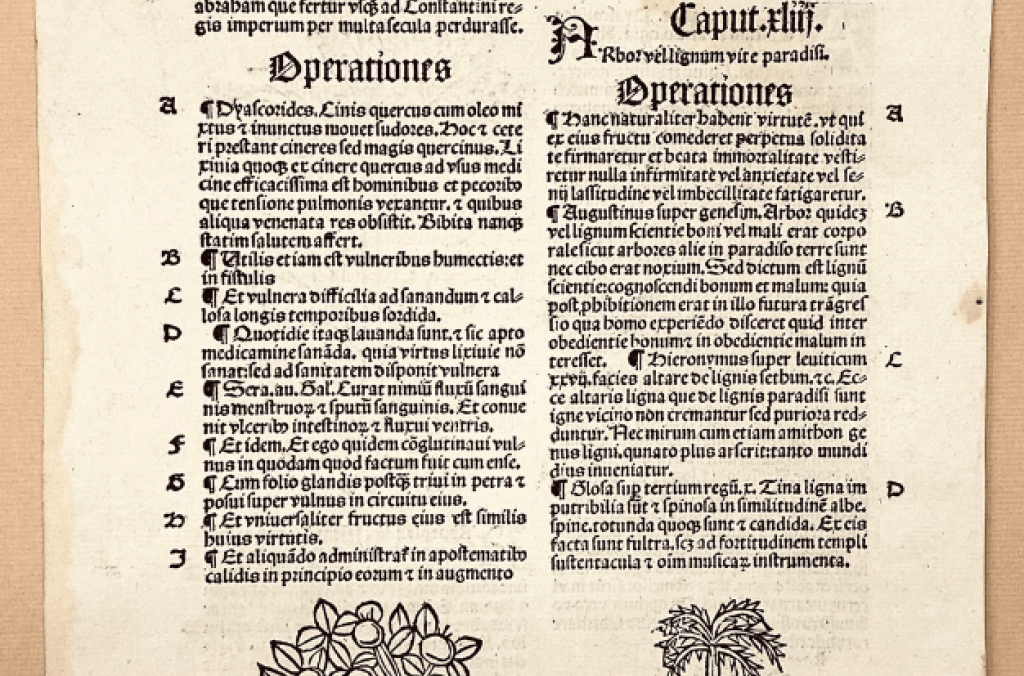 abraham que fertur vsqꝫ ad Constantini re⸗
gis imperium per multa secula perdurasse.
Operationes
A
¶ Dyascorides. Cinis quercus cum oleo mi
xtus ⁊ inunctus mouet sudores. Hoc ⁊ cete
ri prestant cineres sed magis quercinus. Li
xinia quoqꝫ ex cinere quercus ad vsus medi
cine efficacissima est hominibus et pecoribꝰ
que tensione pulmonis vexantur. ⁊ quibus
aliqua venenata res obsistit. Bibita nanqꝫ
statim salutem affert.
B
¶ Utilis etiam est vulneribus humectis: et
in fistulis
C
¶ Et vulnera difficilia ad sanandum ⁊ cal⸗
losa longis temporibus sordida.
D
¶ Quotidie itaqꝫ lauanda sunt. ⁊ sic apto
medicamine sanãda. quia virtus lixiuie nõ
sanat: sed ad sanitatem disponit vulnera
E
¶ Sera. au. Gal. Curat nimiũ fluxũ sangui
nis menstruoꝝ ⁊ sputũ sanguinis. Et conue
nit vlceribꝰ intestinoꝝ ⁊ fluxui ventris.
F
¶ Et idem. Et ego quidem cõglutinaui vul⸗
nus in quodam quod factum fuit cum ense.
G
¶ Cum folio glandis postqꝫ triui in petra ⁊
posui super vulnus in circuitu eius.
H
¶ Et vniuersaliter fructus eius est similis
huius virtutis.
I
¶ Et aliquãdo administrat̃ in apostematibꝰ
calidis in principio eorum ⁊ in augmento
Caput. xliij.
ARbor vel lignum vite paradisi.
Operationes
A
¶ Hanc naturaliter habent virtutẽ. vt qui
ex eius fructu comederet perpetua solidita
te firmaretur et beata immortalitate vesti⸗
retur nulla infirmitate vel anxietate vel se⸗
nij lassitudine vel imbecillitate fatigaretur.
B
¶ Augustinus super genesim. Arbor quideꝫ
vel lignum scientie boni vel mali erat corpo
ralis sicut arbores alie in paradiso terre sunt
nec cibo erat noxium. Sed dictum est lignũ
scientie: cognoscendi bonum et malum: quia
post ꝓhibitionem erat in illo futura trãgres
sio qua homo experiẽdo disceret quid inter
obedientie bonum ⁊ in obedientie malum in
teresset. ¶ Hieronymus super leuiticum
C
xxvij. facies altare de lignis sethim. ⁊c. Ec⸗
ce altaris ligna que de lignis paradisi sunt
igne vicino non cremantur sed puriora red⸗
duntur. Nec mirum cum etiam amithon ge
nus ligni. qunato plus arserit: tanto mundi
dius inueniatur.
D
¶ Glosa suꝑ tertium regũ. x. Tina ligna im
putribilia sũt ⁊ spinosa in similitudinẽ albe.
spine. rotunda quoqꝫ sunt ⁊ candida. Ex eis
facta sunt fultra. scꝫ ad fortitudinem templi
sustentacula ⁊ oim musicaꝝ instrumenta.